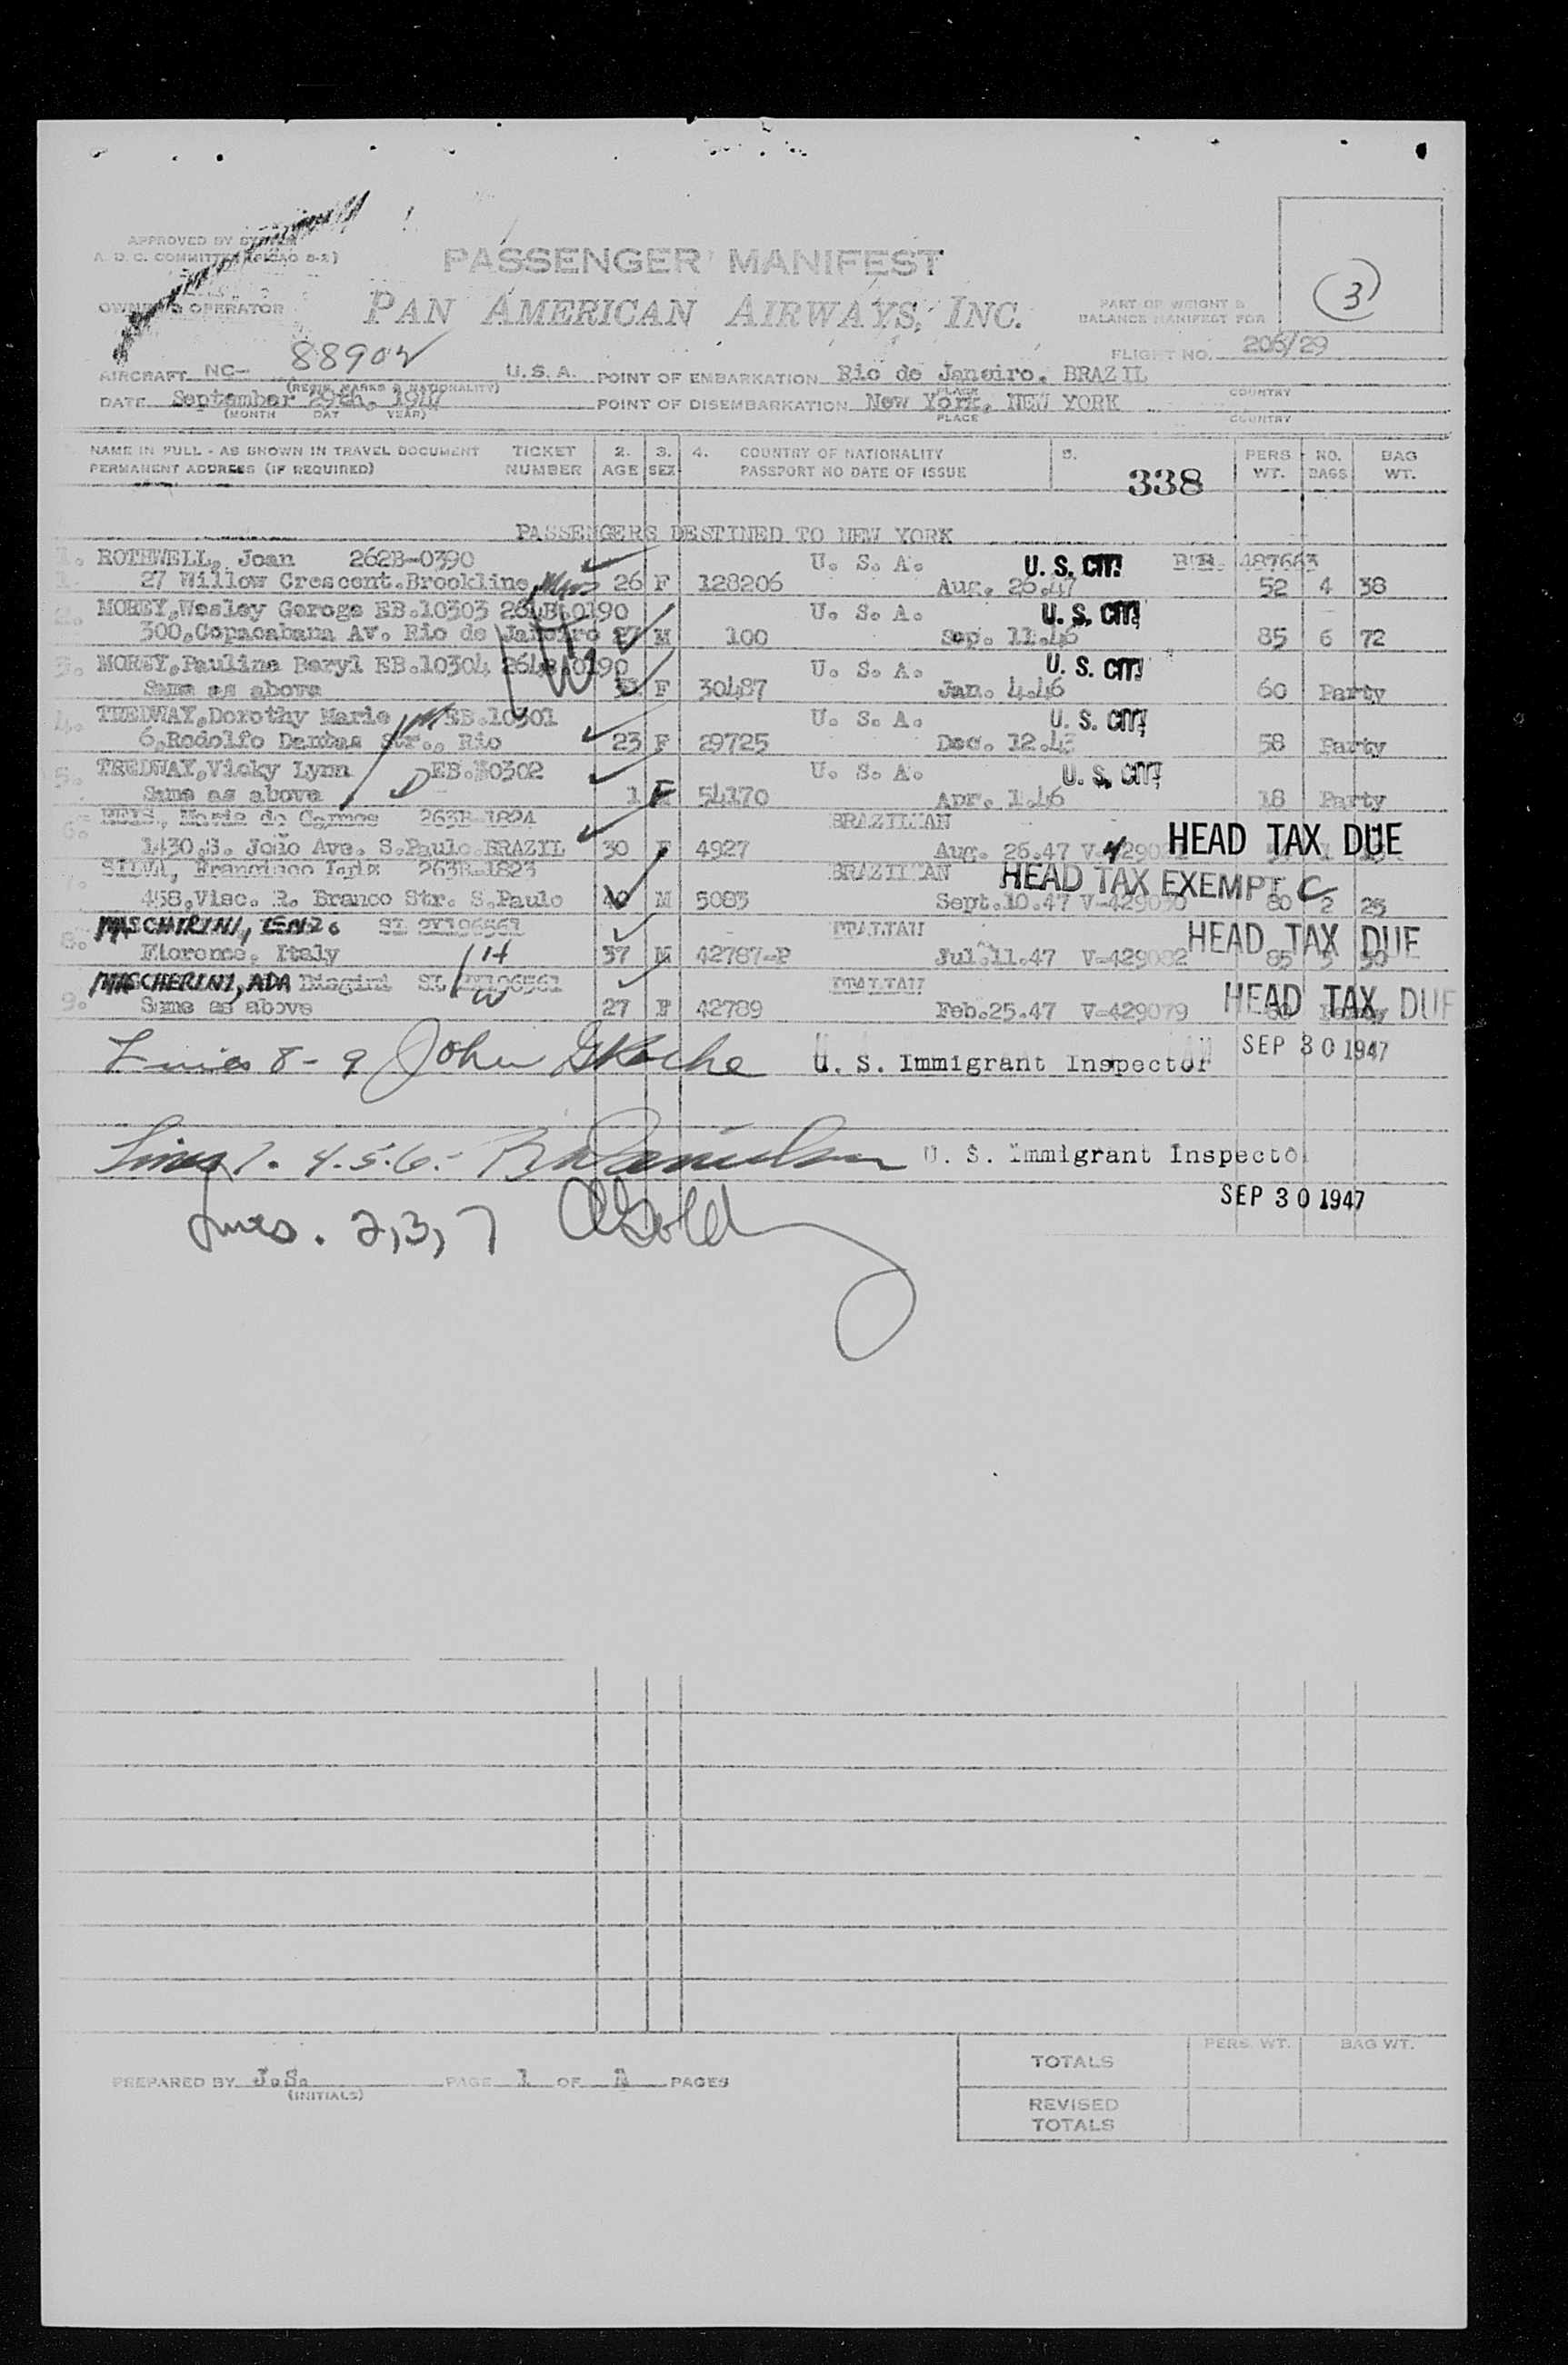 APPROVED BY SYSTEM
A. D. C. COMMITTEE (PICAO 8-2)
PASSENGER MANIFEST
3
OWNER & OPERATOR
PAN AMERICAN AIRWAYS, INC.
PART OF WEIGHT &
BALANCE MANIFEST FOR
FLIGHT NO. 206/29
AIRCRAFT NC- 88902 U.S.A. POINT OF EMBARKATION Rio de Janeiro. BRAZIL
(REGIS. MARKS & NATIONALITY) PLACE COUNTRY
DATE September 29th. 1947 POINT OF DISEMBARKATION New York, NEW YORK
(MONTH DAY YEAR) PLACE COUNTRY
NAME IN FULL - AS SHOWN IN TRAVEL DOCUMENT TICKET 2. 3. 4. COUNTRY OF NATIONALITY 5. PERS NO. BAG
PERMANENT ADDRESS (IF REQUIRED) NUMBER AGE SEX PASSPORT NO DATE OF ISSUE 338 WT. BAGS WT.
PASSENGERS DESTINED TO NEW YORK
1. ROTHWELL, Joan 262B-0390 U. S. A. U. S. CIT. 487663
27 Willow Crescent.Brookline Mass 26 F 128206 Aug. 26.47 52 4 38
2. MOREY,Wesley Geroge EB.10303 264B.0190 U. S. A. U. S. CIT.
300,Copacabana Av. Rio de Janeiro M 100 Sep. 11.46 85 6 72
3. MOREY,Pauline Beryl EB.10304 264B.0190 U. S. A. U. S. CIT.
Same as above F 30487 Jan. 4.46 60 Party
4. TREDWAY,Dorothy Marie EB.10301 U. S. A. U. S. CIT.
6,Rodolfo Dantas Str., Rio 23 F 29725 Dec. 12.43 58 Party
5. TREDWAY,Vicky Lynn EB.10302 U. S. A. U. S. CIT.
Same as above 1 F 54170 Apr. 1.46 18 Party
6. REIS, Maria do Carmos 263B-1824 BRAZILIAN
1430,S. João Ave. S.Paulo BRAZIL 30 F 4927 Aug. 26.47 HEAD TAX DUE
7. SILVA, Francisco Luiz 263B-1823 BRAZILIAN HEAD TAX EXEMPT C
458,Visc. R. Branco Str. S.Paulo 40 M 5083 Sept.10.47 80 2 25
8. MASCHIRINI, ENZO ITALIAN HEAD TAX DUE
Florence, Italy 37 M 42787-P Jul.11.47 V-429082 85
9. MASCHERINI, ADA Biagini ITALIAN HEAD TAX DUE
Same as above 27 F 42789 Feb.25.47 V-429079
Lines 8-9 John U. S. Immigrant Inspector SEP 30 1947
Lines 1. 4.5.6.- U. S. Immigrant Inspecto
SEP 30 1947
Lines. 2,3,7
PREPARED BY J.S. PAGE 1 OF PAGES
(INITIALS)
PERS. WT. BAG WT.
TOTALS
REVISED
TOTALS